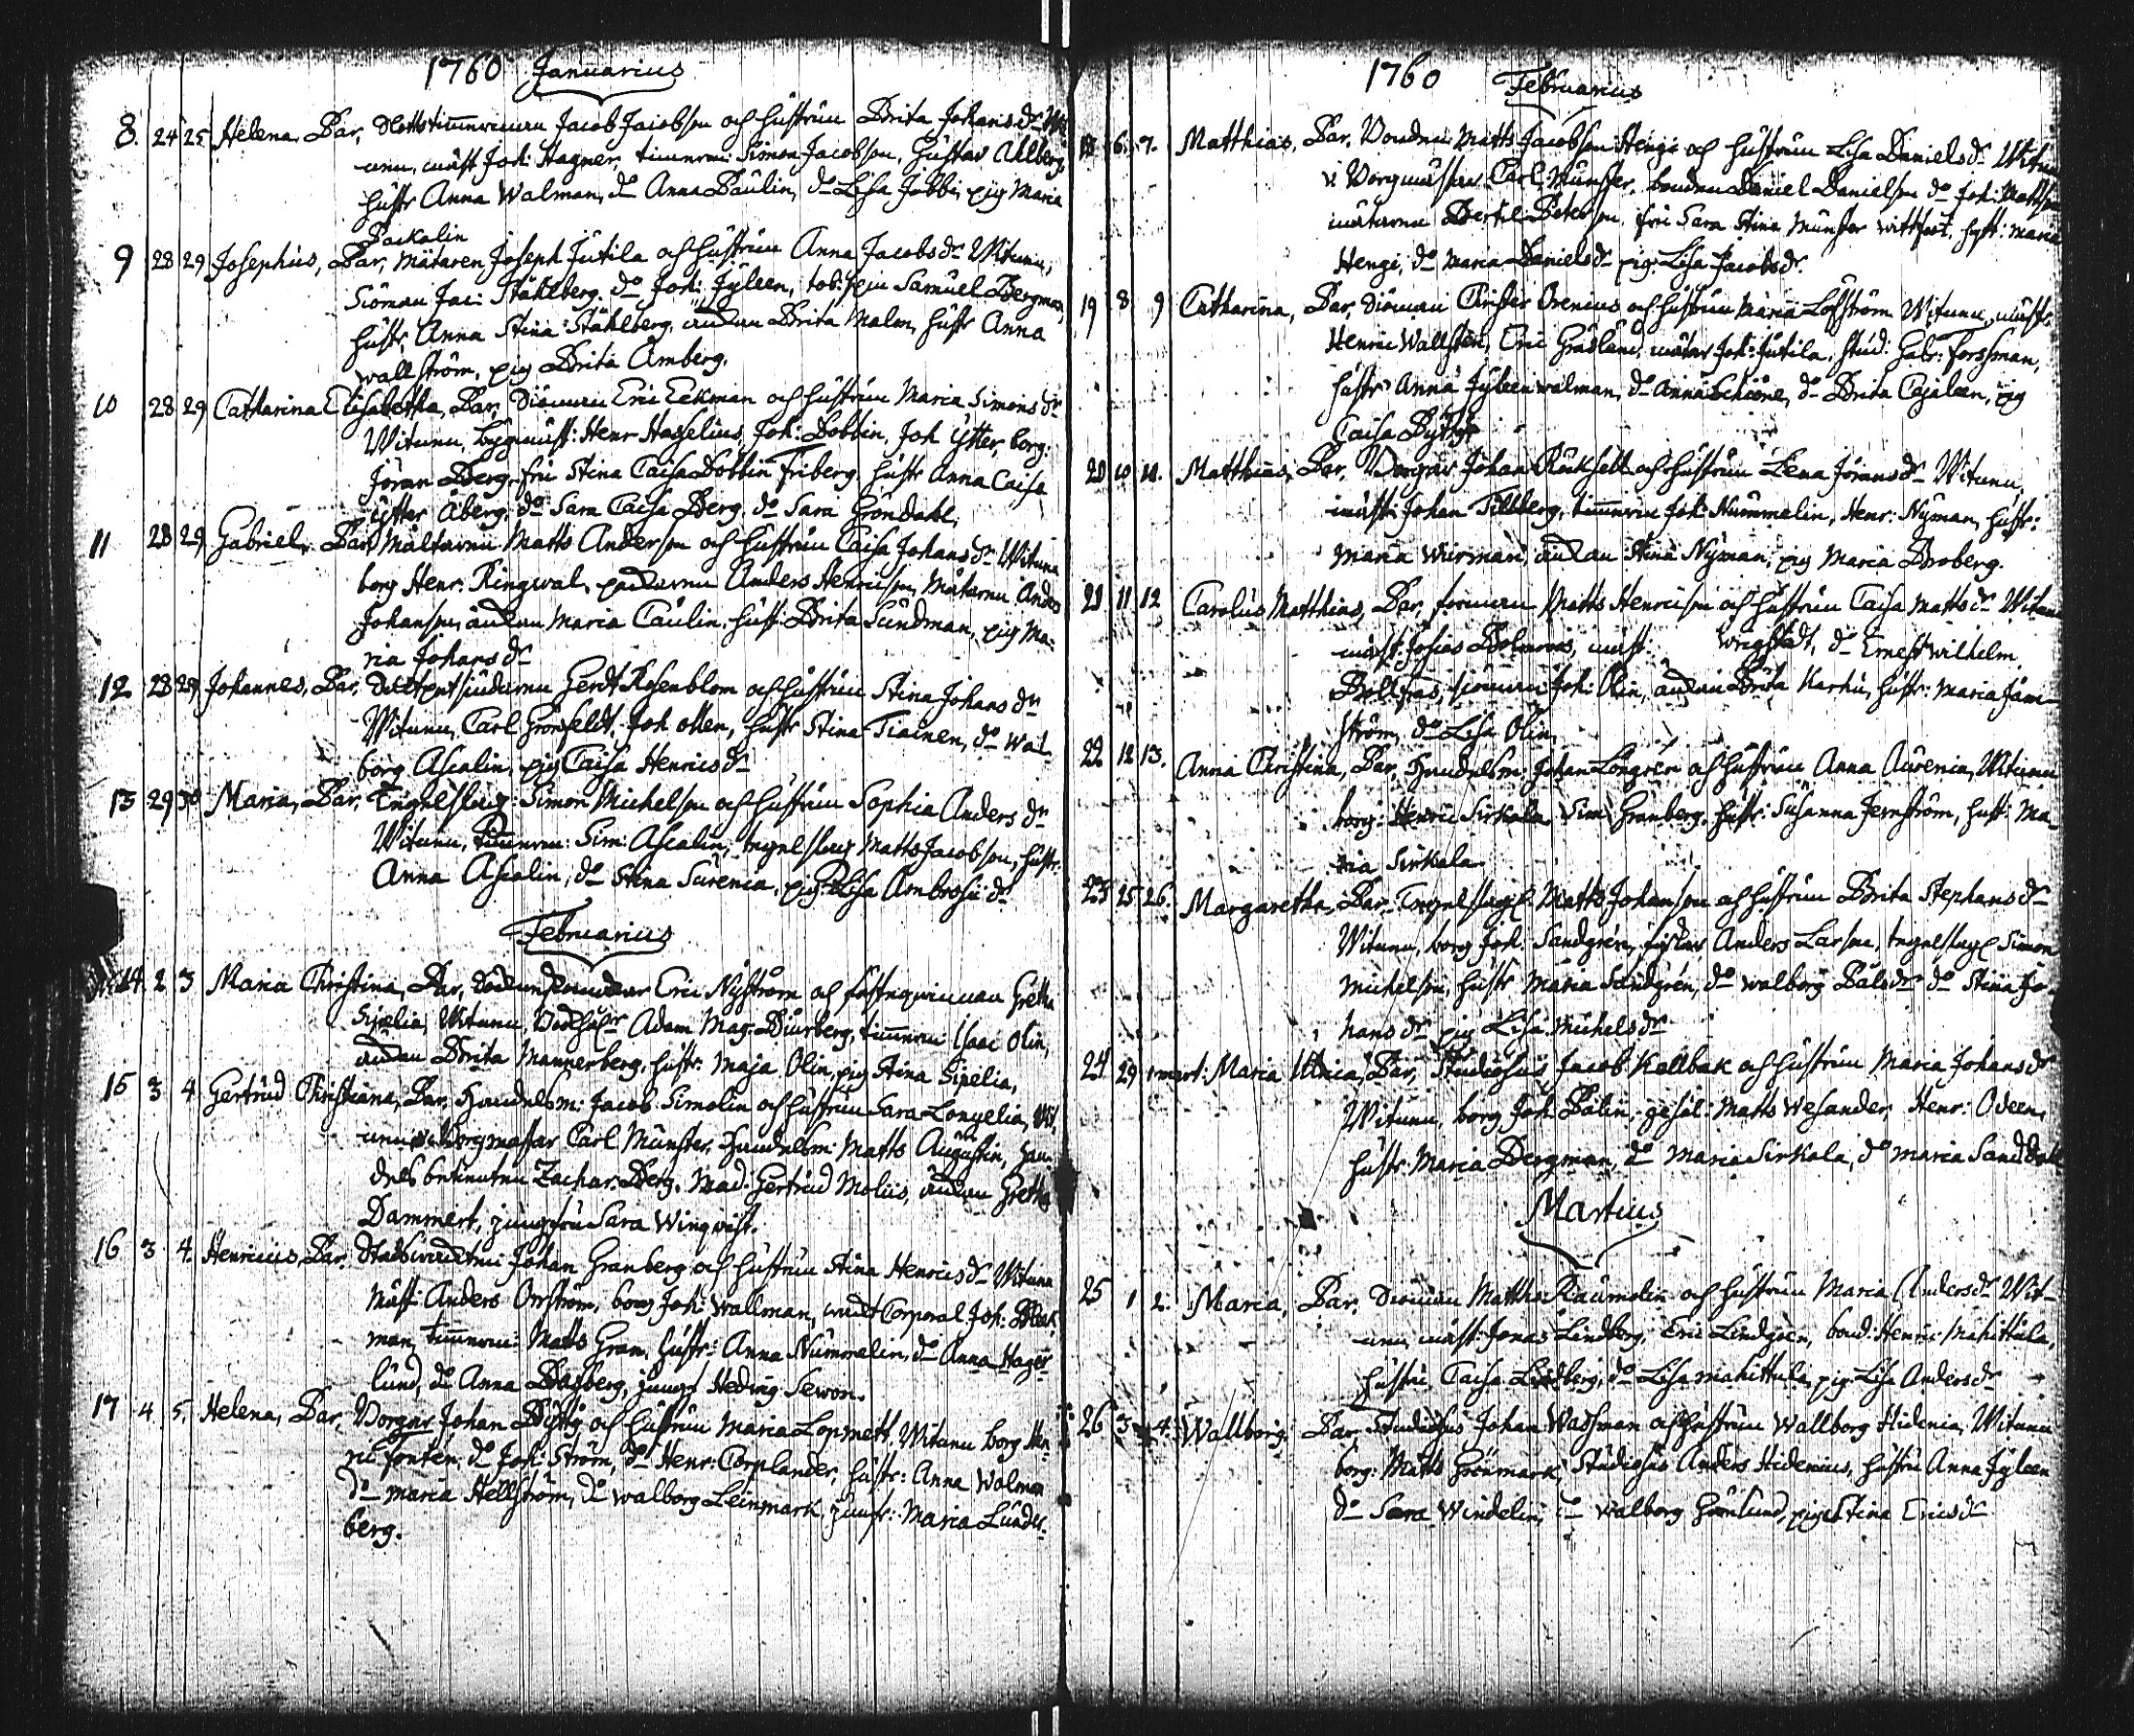 1760 Januarius
8. 24 25 Helena, Bar, Slottstimmerman Jacob Jacobson och hustrun Brita Johansdr Wit
unn, mäst Joh: Hagner, timmerm: Simon Jacobson, Gustav Ahlberg,
hustr Anna Walman, do Anna Paulin, do Lisa Jobbi, pig Maria
Backalin
9 28 29 Josephus, Bar, Mätaren Joseph Jutila och hustrun Anna Jacobsdr Witunn,
Siöman Jac: Ståhlberg, do Joh: Jyleen, Samuel Bergman,
hustr Anna Stina Ståhlberg, änkan Brita Malm, hustr Anna
wallström, pig Brita Amberg.
10 28 29 Catharina Elisabetha, Bar, Siöman Eric Eckman och hustrun Maria Simonsdr
Witunn, bygmäst: Henr Hasselius, Joh: Bobbin, Joh Ytter, borg:
Jöran Berg, fru Stina Caisa Dobbin Friberg, hustr Anna Caisa
Ytter Åberg, do Sara Caisa Berg, do Sara Gondahl.
11 28 29 Gabriel, Bar, Mältaren Matts Anderson och hustrun Caisa Johansdr Witunn
borg Henr: Ringwal, Anders Henricson, Mätaren Anders
Johanson, änkan Maria Caulin, hust: Brita Sundman, pig Ma-
ria Johansdr
12 28 29 Johannes, Bar, Gerdt Rosenblom och hustrun Stina Johansdr
Witunn, Carl Grönfeldt, Joh otten, hustr Stina Tiainen, do Wal
borg Ascalin, pig Caisa Henricsdr
13 29 30 Maria, Bar, Simon Michelson och hustrun Sophia Andersdr
Witunn, timmerm: Sim: Ascalin, Matts Jacobson, hustr
Anna Ascalin, do Stina Surenia, pig Lisa Ambrosiidr
Februarius
14 2 3 Maria Christina, Bar, Eric Nyström och fästeqwinnan Gretha
Sipelia, Witunn, Adam Mag: Biurberg, timmerm Isaac Olin,
änkan Brita Mannerberg, hustr: Maja Olin, pig Stina Sipelia,
15 3 4 Gertrud Christiana, Bar, Handelsm: Jacob Simolin och hustrun Sara Longelia, Wit
unn Borgmästar Carl Münster, Handelsm: Matts Augustin, han
dels betienten Zachar: Berg, Mad: Gertrud Moliis, änkan Gretha
Dammert, jungfru Sara Winqvist.
16 3 4. Henricus, Bar, Johan Granberg och hustrun Stina Henricsdr Witunn
Mäst: Anders Orrström, borg Joh: Wallman, Corporal Joh: Bleck
man, timmerm: Matts Gran, hustr: Anna Nummelin, do Anna Hager
lund, do Anna Dagberg, jungf Hedvig Sewon.
17 4 5. Helena, Bar, Borgar Johan Byssig och hustrun Maria Lopmett, Witunn borg Hen
ric fonten, do Joh: Ström, do Henr: Torplander, hustr: Anna Walman
do Maria Hellström, do Walborg Leinmark, jungfr: Maria Lunder-
berg.
1760 Februarius
18 6. 7. Matthias, Bar, Bonden Matts Jacobson Hengi och hustrun Lisa Danielsdr Witunn
v: Borgmästar Carl Münster, bonden Daniel Danielson do Joh: Mattson
mätaren Bertil Peterson, fru Sara Stina Münster Wittfoot, hust: Maria
Hengi, do Maria Danielsdr pig: Lisa Jacobsdr.
19 8 9 Catharina, Bar, Siöman Christer Orenius och hustrun Maria Löfström Witunn, mäst:
Henric Wallstén, Eric Gråsland, mätar Joh: Jutila, Stud: Gabr: Forssman,
hustr Anna Jyleen walman, do Anna Schöone, do Brita Cajaleen, pig
Caisa Byssig
20 10 11. Matthias, Bar, Borgar Johan Räcksell och hustrun Lena Jöransdr Witunn,
mäst: Johan Tillberg, timmerm Joh: Nummelin, Henr: Nyman, hustr:
Maria Wurman, änkan Stina Nyman, pig Maria Broberg.
21 11 12 Carolus Matthias, Bar, forman Matts Henricson och hustrun Caisa Mattsdr Witunn
mäst: Josias Bolmans, mäst: Wrigstedt, do Ernest Wilhelm
Bollhus, Joh: Olin, änkan Brita Karhu, hustr: Maria Jäm-
ström, do Lisa Olin.
22 12 13. Anna Christina, Bar, Handelsm: Johan Löngren och hustrun Anna Aurenia, Witunn
borg: Henric Sirkala, Sim: Granberg, hustr: Susanna Jernström, hust: Ma-
ria Sirkala
23 25 26. Margaretha, Bar, Matts Johanson och hustrun Brita Stephansdr
Witunn, borg Joh: Sandgrén, Anders Larson, Simon
Michelson, hustr Maria Sandgrén, do Walborg Pålsdr do Stina Jo-
hansdr pig Lisa Michelsdr
24 29 1 mart: Maria Ulrica, Bar, Studiosus Jacob Kallbak och hustrun Maria Johansdr
Witunn, borg Joh: Palin, gesäl: Matts Wesander, Henr: Oveen,
hustr: Maria Bergman, do Maria Sirkala, do Maria Sanddahl
Martius
25 1 2. Maria, Bar, Siöman Matths: Raumolin och hustrun Maria Andersdr Wit-
unn, mäst: Jonas Lindberg, Eric Lindgren, bond: Henric Mahittula,
hustru Caisa Lindberg, do Lisa Mahittula, pig Lisa Andersdr
26 3 4. Wallborg, Bar, Studiosus Johan Wassman och hustrun Wallborg Hidenia, Witunn
borg: Matts Grönmark, Studiosus Anders Hidenius, hustru Anna Jyleen
do Sara Windelin, do Walborg Grönlund, pig Stina Ericsdr